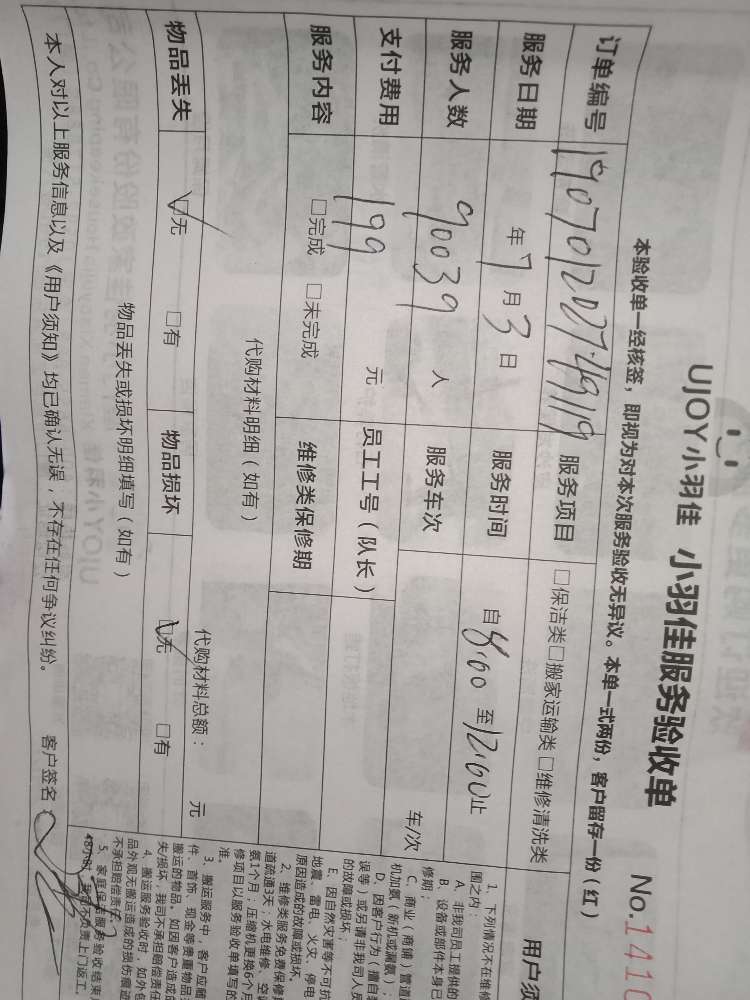 UJOY小羽佳 小羽佳服务验收单
No.1410
本验收单一经核签，即视为对本次服务验收无异议。本单一式两份，客户留存一份（红）
订单编号
服务项目 □保洁类□搬家运输类 □维修清洗类
服务日期 年 7 月 3 日 服务时间 自 8:00 至 12:00 止
服务人数 90039 人 服务车次 车/次
支付费用 199 元 员工工号（队长）
服务内容 □完成 □未完成 维修类保修期
代购材料明细（如有） 代购材料总额： 元
物品丢失 □无 □有 物品损坏 □无 □有
物品丢失或损坏明细填写（如有）
本人对以上服务信息以及《用户须知》均已确认无误，不存在任何争议纠纷。 客户签名：
用户须
1、下列情况不在维修
围之内：
A、非我司员工提供的
B、设备或部件本身已
修期；
C、商业（商铺、管道
机加氨（新机或漏氨）；
D、因客户行为（擅自
误等）或另请非我司人员
的故障或损坏；
E、因自然灾害等不可抗
地震、雷电、火灾、停电
原因造成的故障或损坏。
2、维修类服务免费保修
道疏通3天；水电维修、空
氨1个月；压缩机更换6个月
修项目以服务验收单填写的
准。
3、搬运服务中，客户应随
件、首饰、现金等贵重物品
搬运的物品。如因客户造成的
失/损坏，我司不承担赔偿责任
4、搬运服务验收时，如外包
品外观无搬运造成的损伤痕迹
不承担赔偿责任。
5、家庭保洁服务验收结束